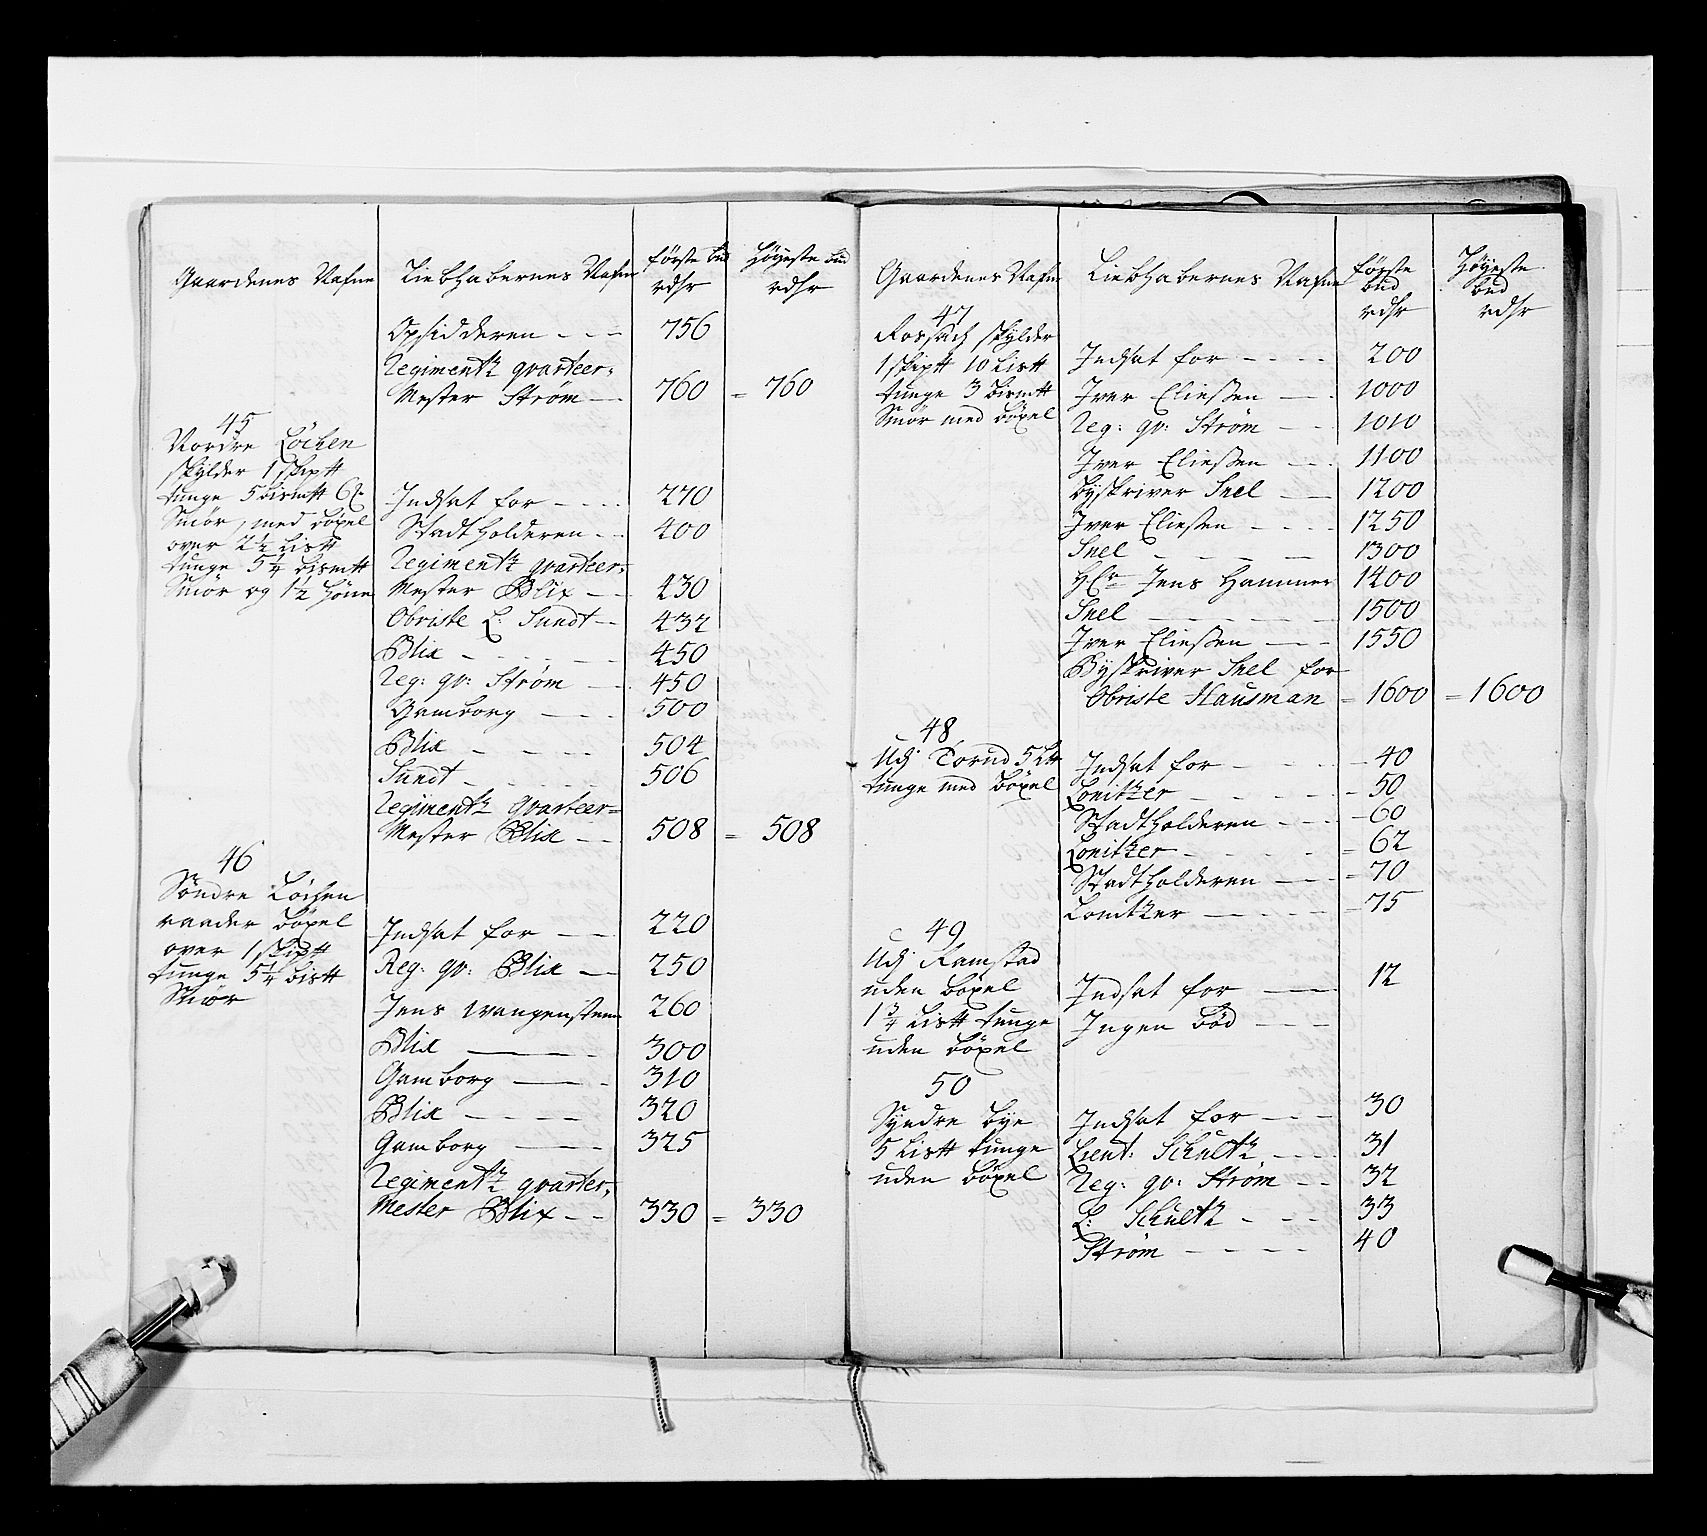 Gaardenes Nafne
Liebhabernes Nafne
første bud
rdlr
Høyeste bud
rdlr
Opsidderen - - - 756
Regimentz qvarteer:
Mester Strøm - - 760 = 760
45
Nordre Löchen
skylder 1 skip℔
tunge 5 bism℔ 6
Smör, med böxel
over 2½ Lis℔
tunge 5¼ bism℔
Smör og 1½ Hönne
Indsat for - - - - 270
Stadtholderen - - 400
Regimentz qvarteer:
Mester Blix - - 430
Obriste L: Sundt - - 432
Blix - - - - - 450
Reg: qv: Strøm - - 450
Gamborg - - - 500
Blix - - - - 504
Sundt - - - - - 506
Regimentz Qvarteer=
Mester Blix - - 508 = 508
46
Söndre Löchen
raader böxel
over 1 skip℔
tunge 5¼ bis℔
Smör
Indsat for - - 220
Reg: qv: Blix - - 250
Jens Wangensteen 260
Blix - - - - 300
Gamborg - - - 310
Blix - - - - 320
Gamborg - - - 325
Regimentz qvarteer,
Mester Blix - - 330 = 330
Gaardenes Nafne
Liebhabernes Nafne
første
bud
rdlr
Høyeste
bud
rdlr
47
skylder
1 skip℔ 10 Lis℔
tunge 3 bism℔
Smör med böxel
Indsat for - - - - 200
Iver Eliessen - - 1000
Reg: qv: Strøm - - 1010
Iver Eliessen - - - 1100
Byskriver Snel - - 1200
Iver Eliessen - - - - 1250
Snel - - - - - 1300
Hr Jens Hammer 1400
Snel - - - - - - 1500
Iver Eliessen - - - 1550
Byskriver Snel for
Obriste Hausman = 1600 = 1600
48
Udj Tornd 5 L℔
tunge med böxel
Indsat for - - - - - 40
Lonitzer - - - - - 50
Stadtholderen - - - - 60
Lonitzer - - - - - = 62
Stadtholderen - - - 70
Lonitzer - - - - - 75
49
Udj Ramstad
uden böxel
1¾ Lis℔ tunge
uden böxel
Indsat for - - - 12
Ingen bød - - -
50
Syndre bye
5 Lis℔ tunge
uden böxel
Indsat for - - - 30
Lieut: Schultz - - - 31
Reg: qv: Strøm - - 32
L: Schultz - - - 33
Strøm - - - - 40